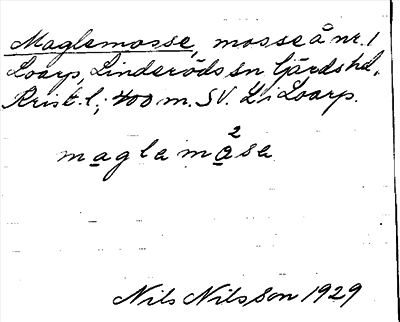 Maglemosse, mosse å nr. 1
Loarp, Linderöds sn Gärds hd,
Krist. l.; 400 m. SV. L i Loarp.
maglamå²sa
Nils Nilsson 1929